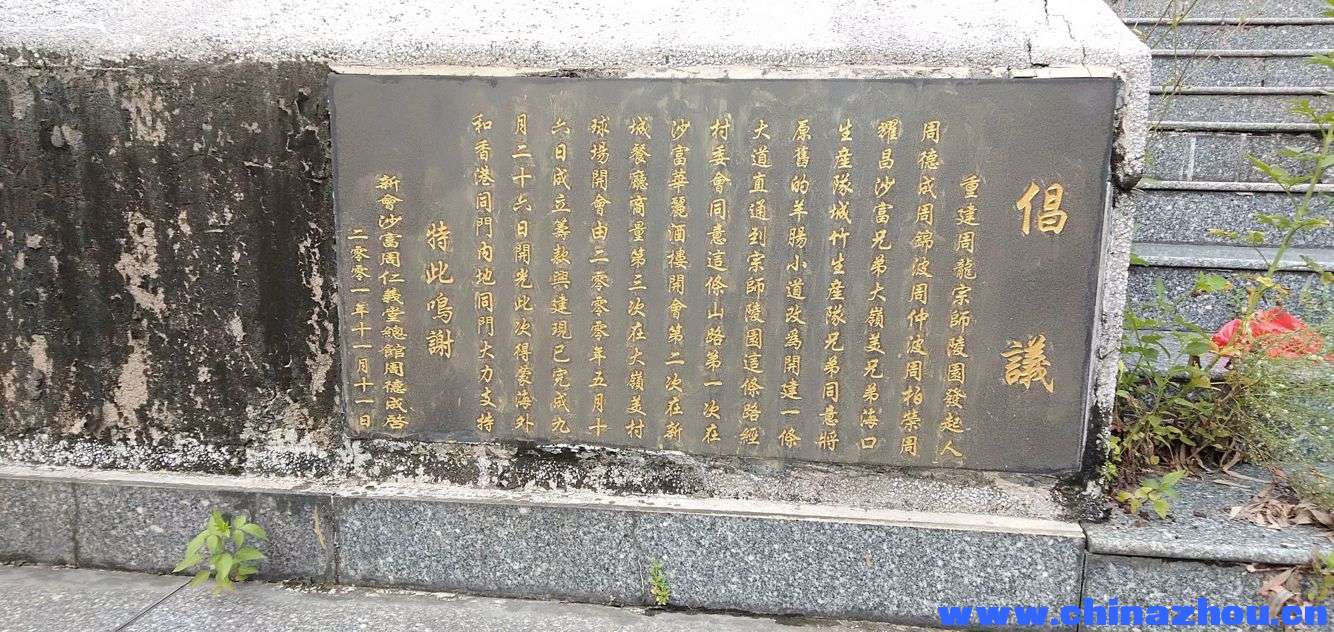 倡議
重建周龍宗師陵園發起人
周德成周錦波周仲波周柏榮周
耀昌沙富兄弟大嶺美兄弟海口
生產隊城竹生產隊兄弟同意將
原舊的羊腸小道改為開建一條
大道直通到宗師陵園這條路經
村委會同意這條山路第一次在
沙富華麗酒樓開會第二次在新
城餐廳商量第三次在大嶺美村
球場開會由二零零零年五月十
六日成立籌款興建現已完成九
月二十六日開光此次得蒙海外
和香港同門內地同門大力支持
特此鳴謝
新會沙富周仁義堂總館周德成啓
二零零一年十一月十一日
www.chinazhou.cn